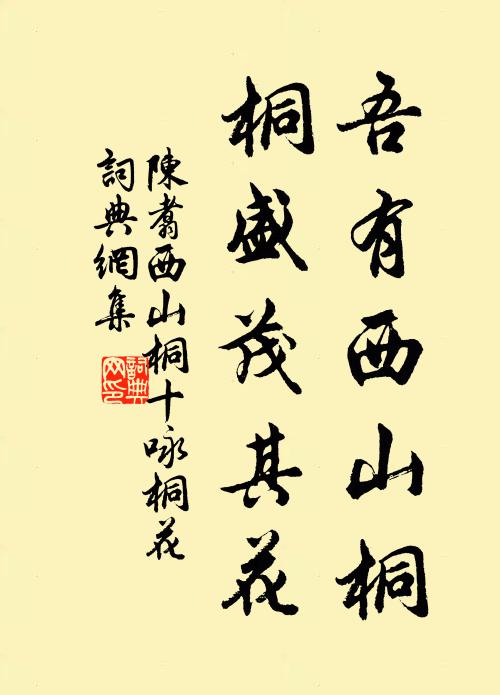 吾有西山桐
桐盛茂其花
陳翥西山桐十咏桐花
詞典網集
詞典
网印